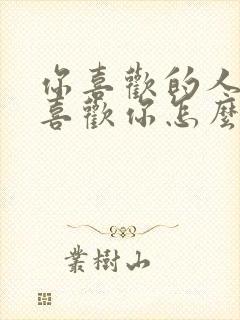 你喜歡的人
喜歡你怎麼
葉樹山